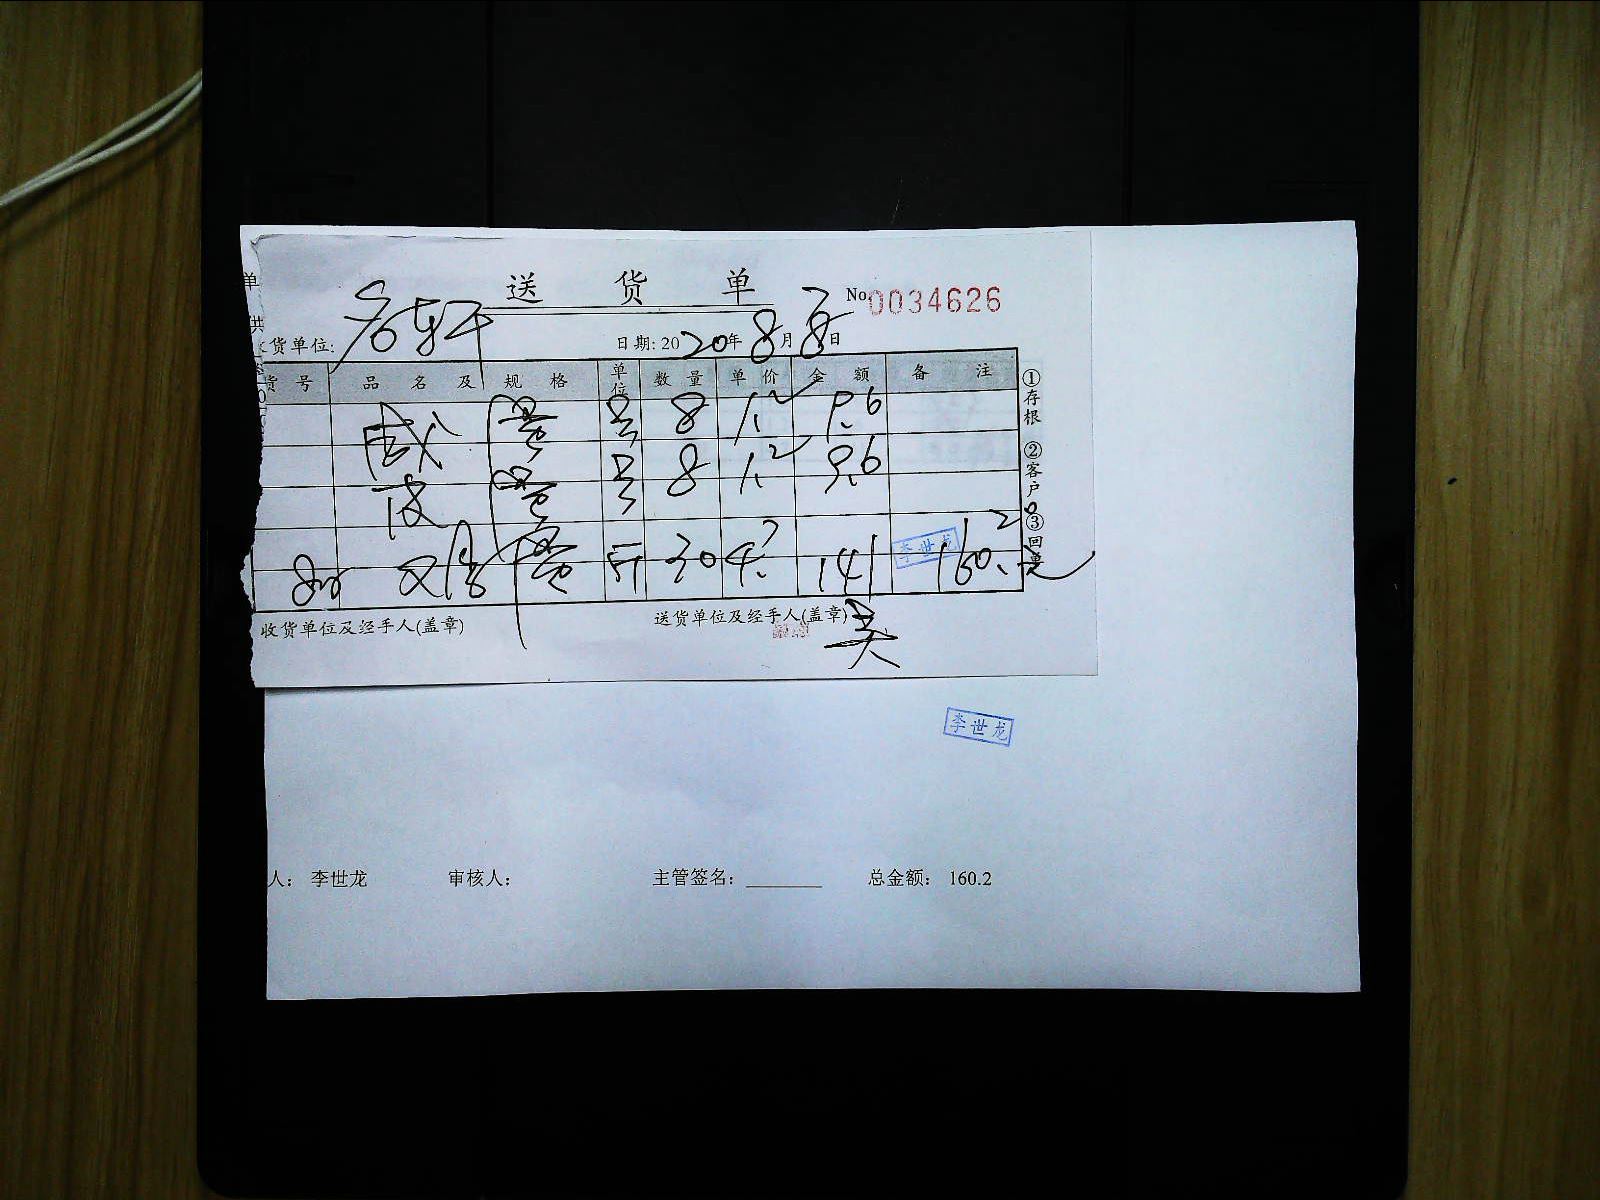 单
供
送 货 单
No 0034626
货单位:
日期: 2020年8月8日
货 号 品 名 及 规 格 单位 数 量 单 价 金 额 备 注
咸 蛋 8 1.2 9.6
皮 蛋 8 1.2 9.6
蛋 斤 30 4.7 141
李世龙
160.2元
①存根 ②客户 ③回单
收货单位及经手人(盖章)
送货单位及经手人(盖章)
吴
李世龙
人： 李世龙 审核人： 主管签名：________ 总金额： 160.2